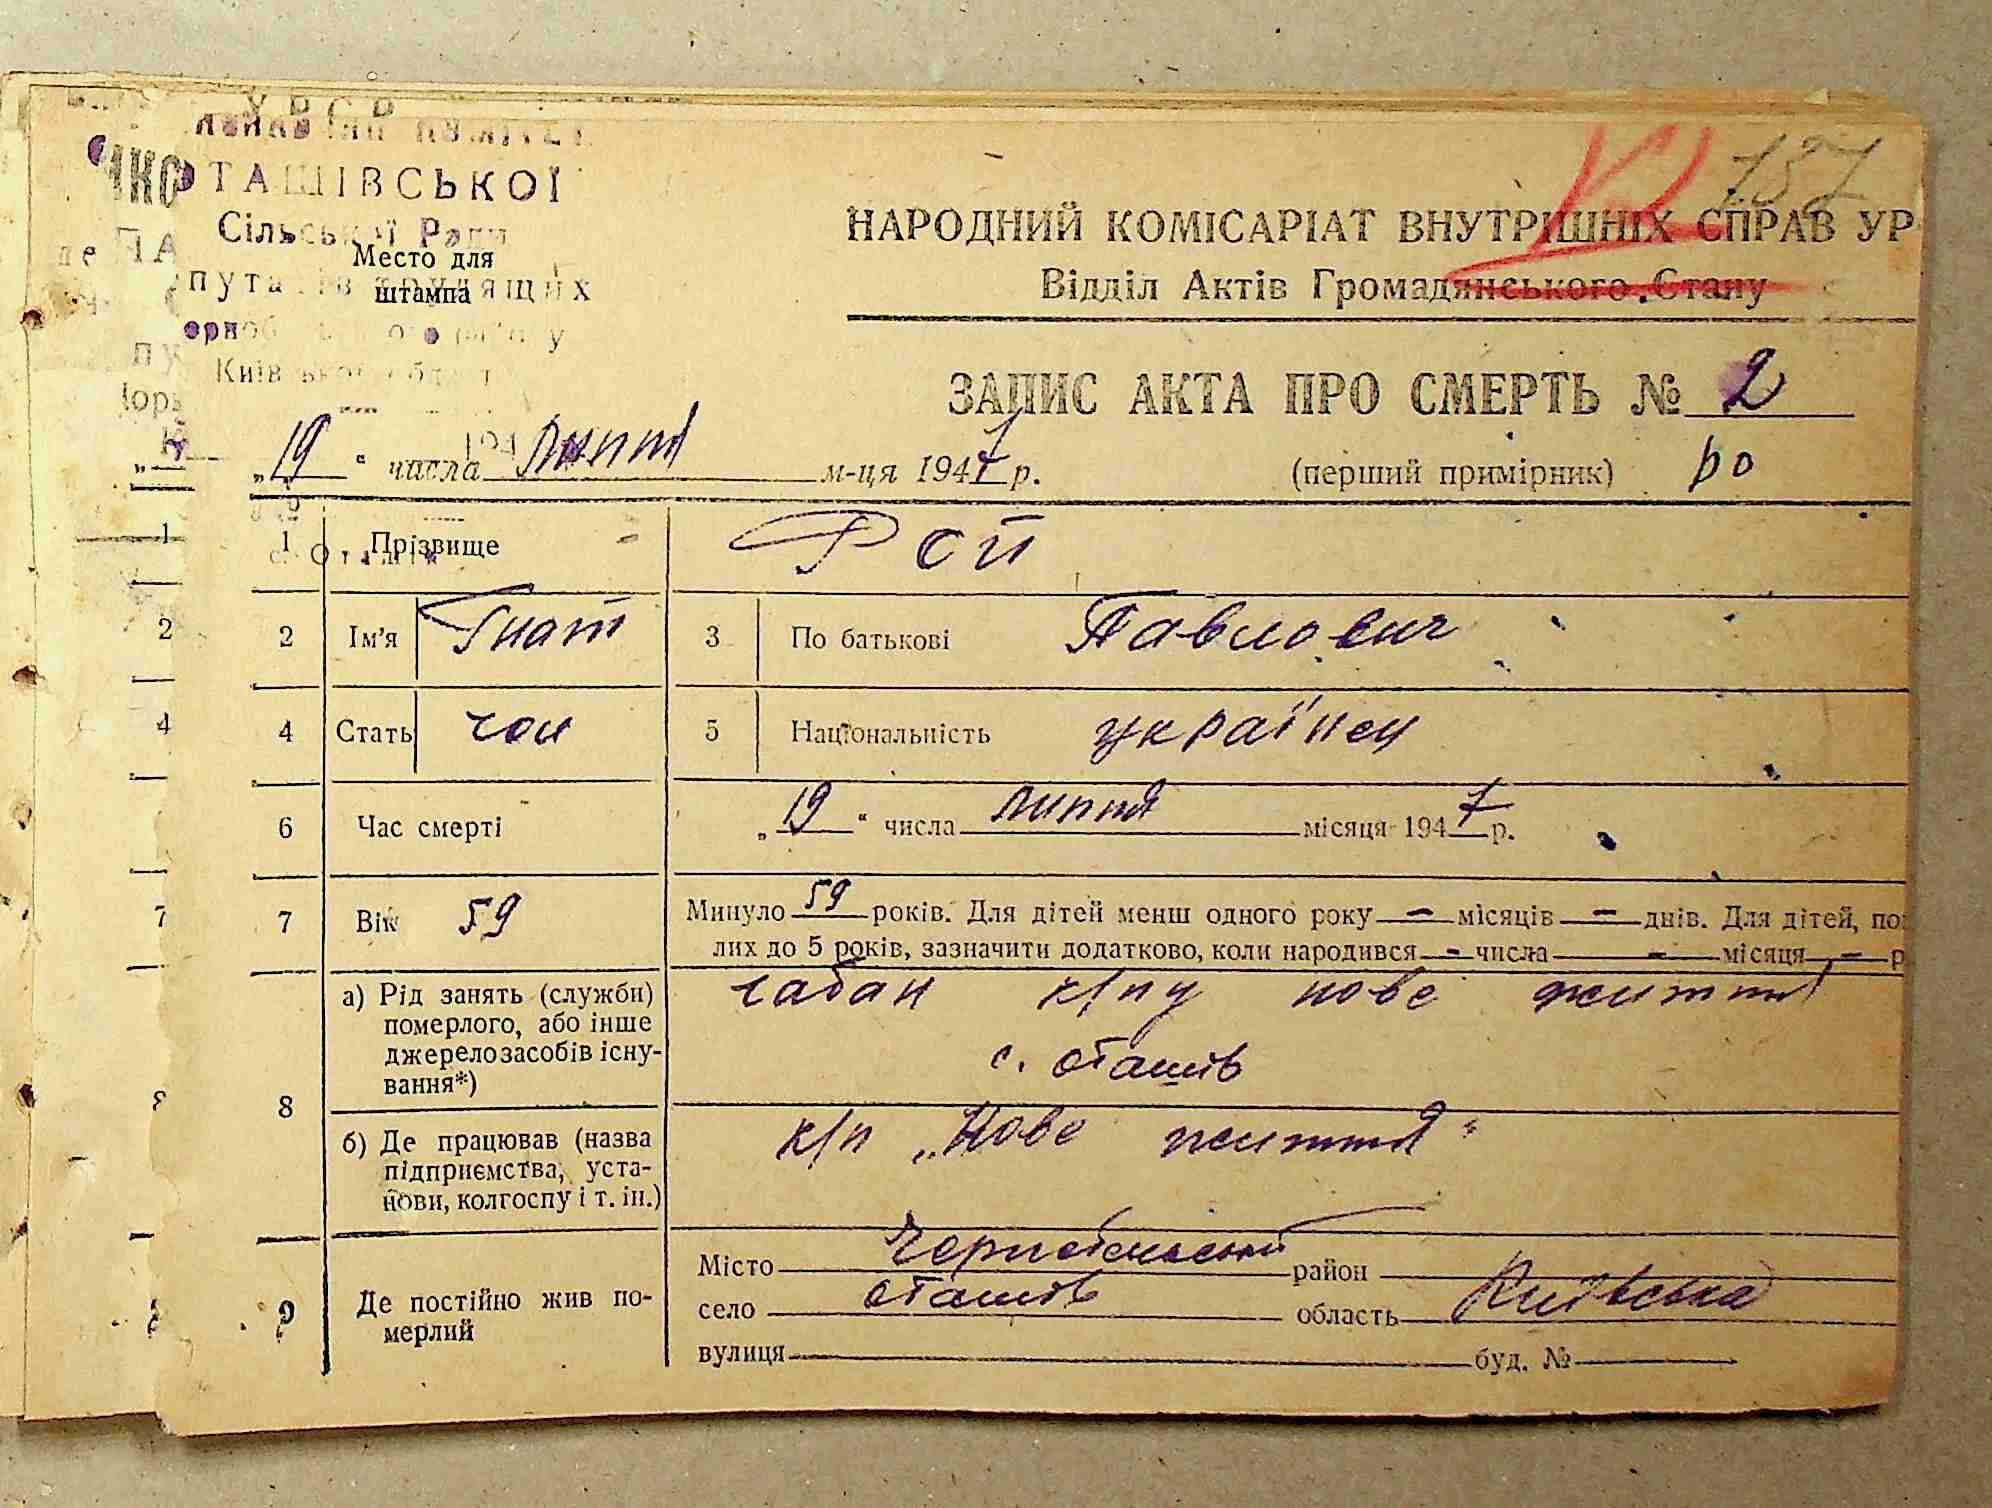 УРСР
ВИКОНАВЧИЙ КОМІТЕТ
ОТАШІВСЬКОЇ
Сільської Ради
депутатів трудящих
Чорнобильського району
Київської області
Место для
штампа
с. Оташів
187
НАРОДНИЙ КОМІСАРІАТ ВНУТРІШНІХ СПРАВ УР
Відділ Актів Громадянського Стану
ЗАПИС АКТА ПРО СМЕРТЬ № 2
„19“ числа липня м-ця 1947 р. (перший примірник) ро
1 Прізвище Рой
2 Ім'я Гнат 3 По батькові Павлович
4 Стать чол 5 Національність українец
6 Час смерті „19“ числа липня місяця 1947 р.
7 Вік 59 Минуло 59 років. Для дітей менш одного року — місяців — днів. Для дітей, по
лих до 5 років, зазначити додатково, коли народився - числа - місяця - р
8 а) Рід занять (служби) померлого, або інше джерело засобів існування*) чабан к/пу нове життя
с. Оташів
б) Де працював (назва підприємства, установи, колгоспу і т. ін.) к/п „Нове життя“
9 Де постійно жив померлий
Місто Чернобильский район
село Оташів область Київська
вулиця буд. №